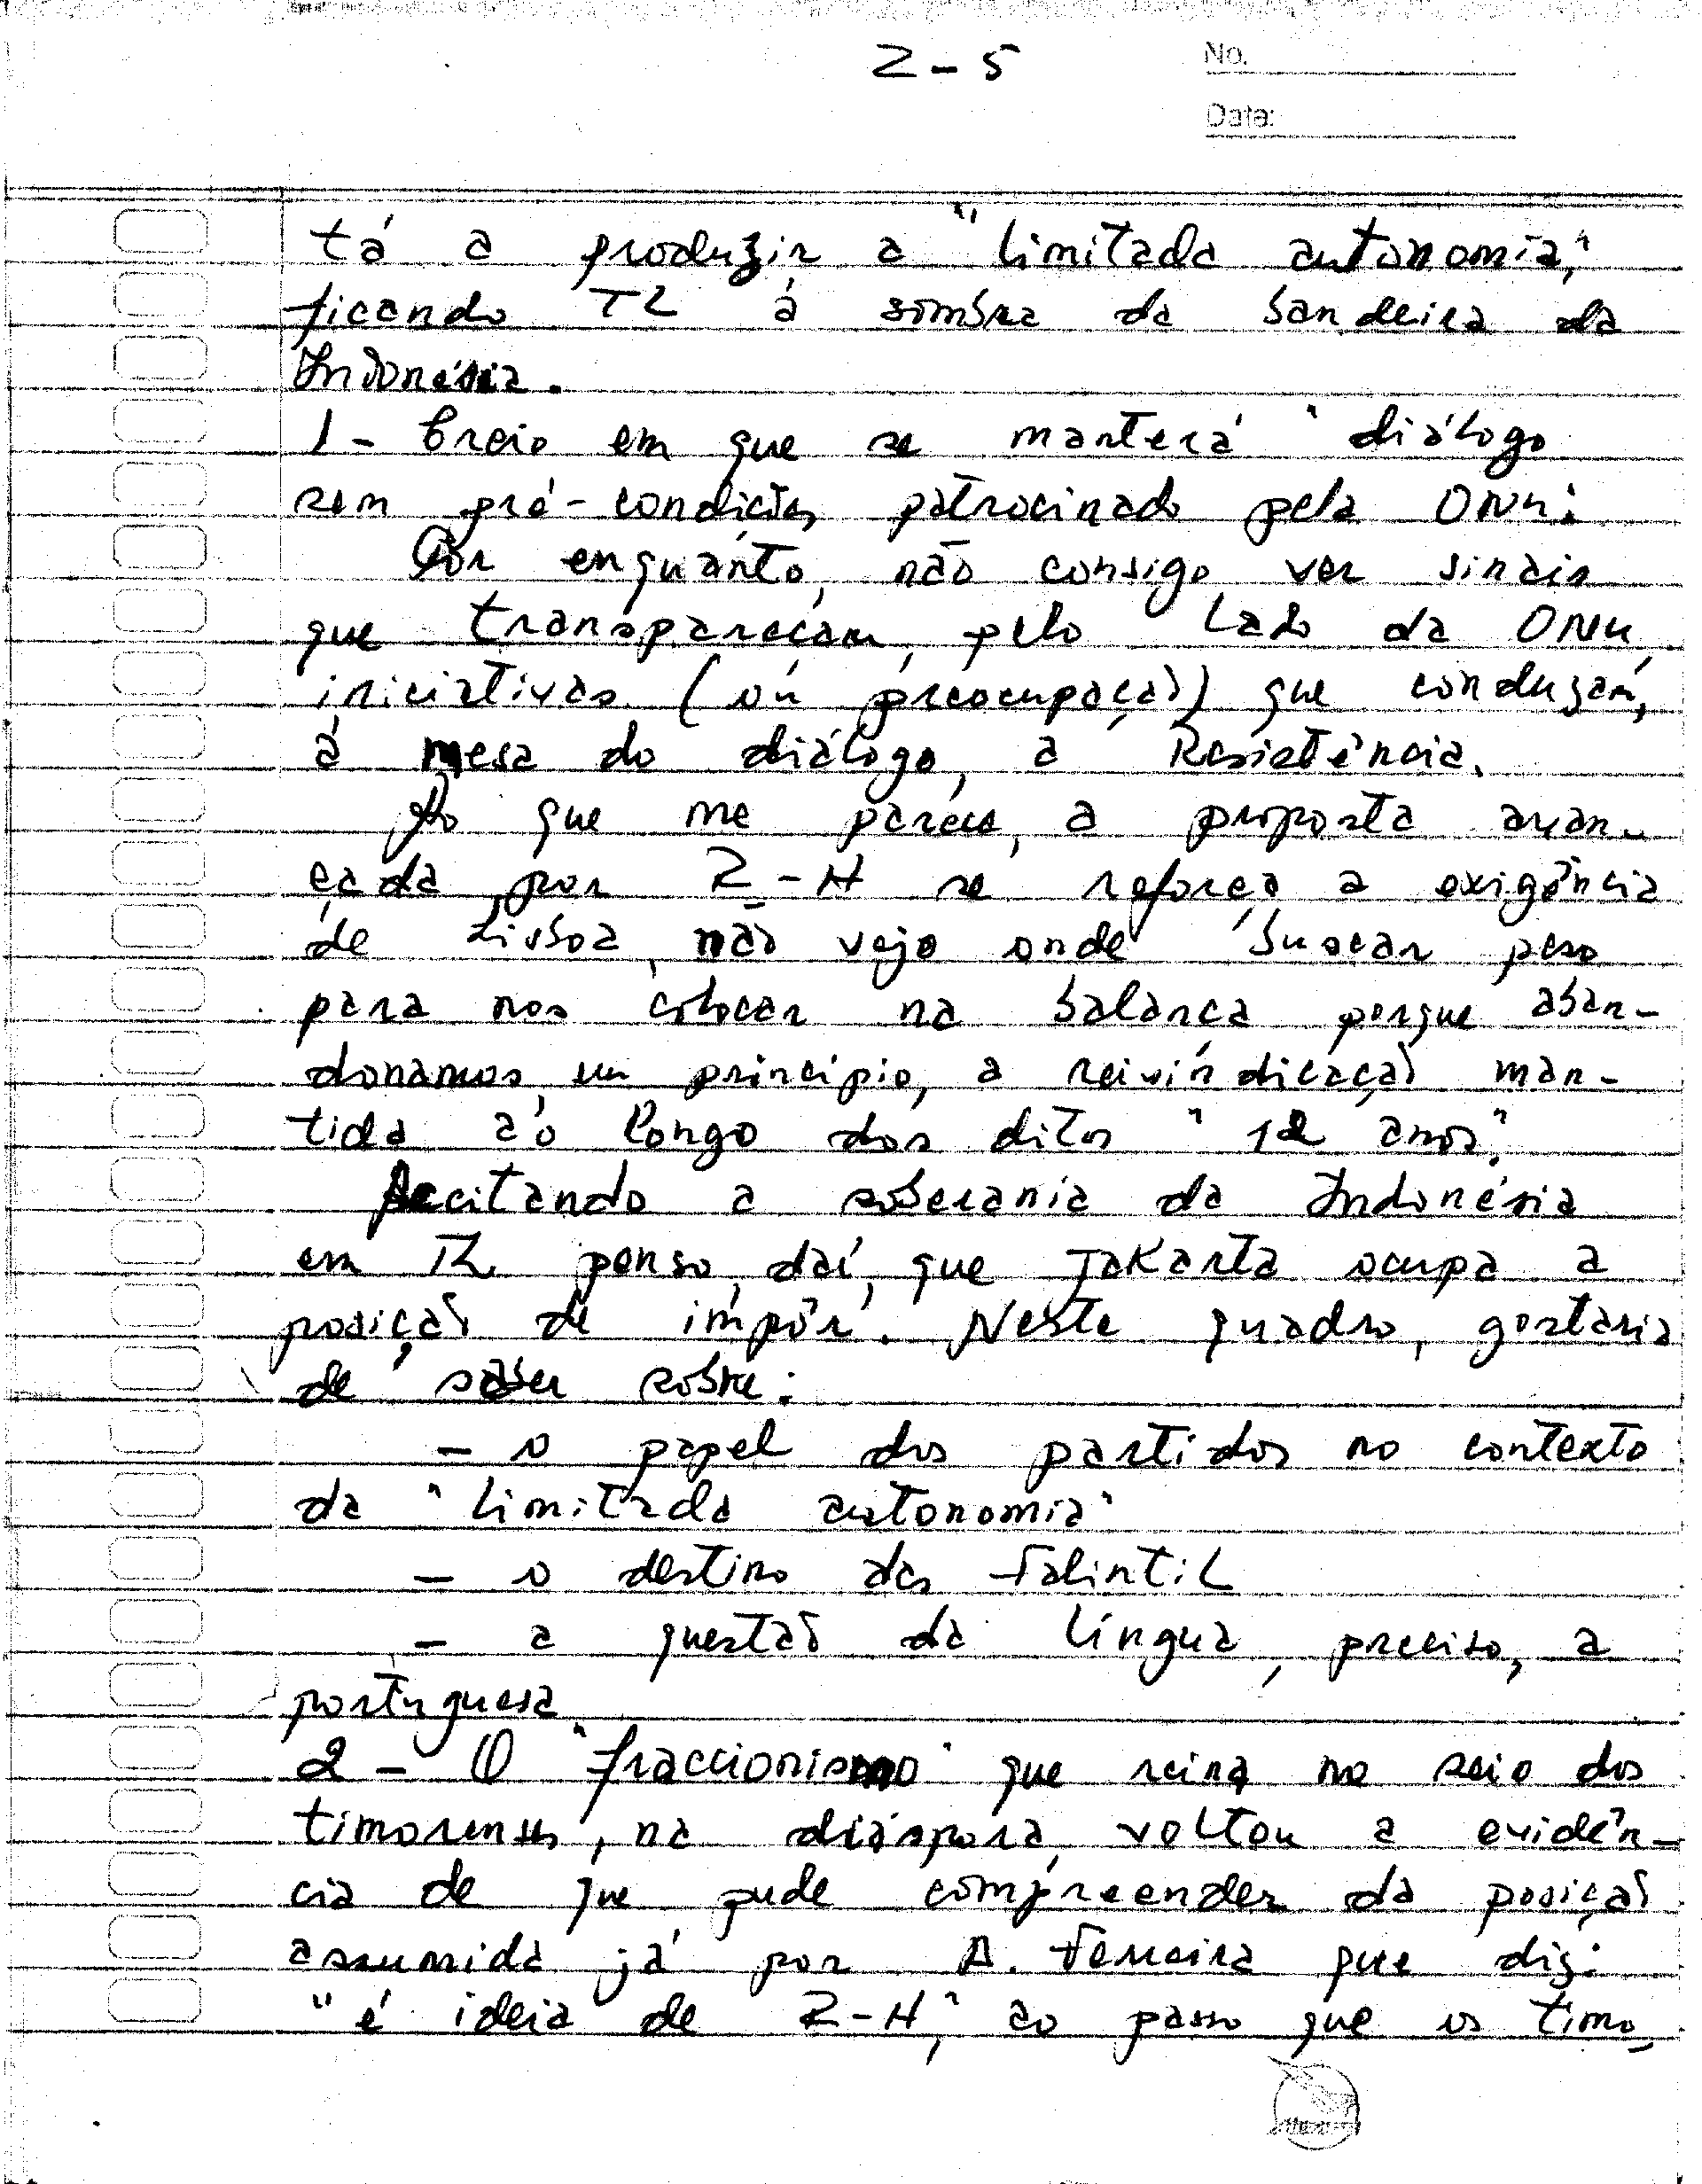 2-5
No.
Data:
tá a produzir a "limitada autonomia,"
ficando TL à sombra da bandeira da
Indonésia.
1 - Creio em que se manterá "diálogo
sem pré-condições patrocinado pela ONU":
Por enquanto, não consigo ver sinais
que transpareçam, pelo lado da ONU,
iniciativas (ou preocupação) que conduzam,
à mesa do diálogo, a Resistência.
Ao que me parece, a proposta avan-
çada por R-H se reforça a exigência
de Lisboa, não vejo onde buscar peso
para nos colocar na balança porque aban-
donamos um princípio, a reivindicação man-
tida ao longo dos ditos "12 anos".
Aceitando a soberania da Indonésia
em TL penso, daí, que Jakarta ocupa a
posição de impôr. Neste quadro, gostaria
de saber sobre:
- o papel dos partidos no contexto
da "limitada autonomia"
- o destino das Falintil
- a questão da língua, preciso, a
portuguesa
2 - O "fraccionismo" que reina no seio dos
timorenses, na diáspora, voltou a evidên-
cia de que pude compreender da posição
assumida já por A. Ferreira que diz:
"é ideia de R-H", ao passo que os timo,